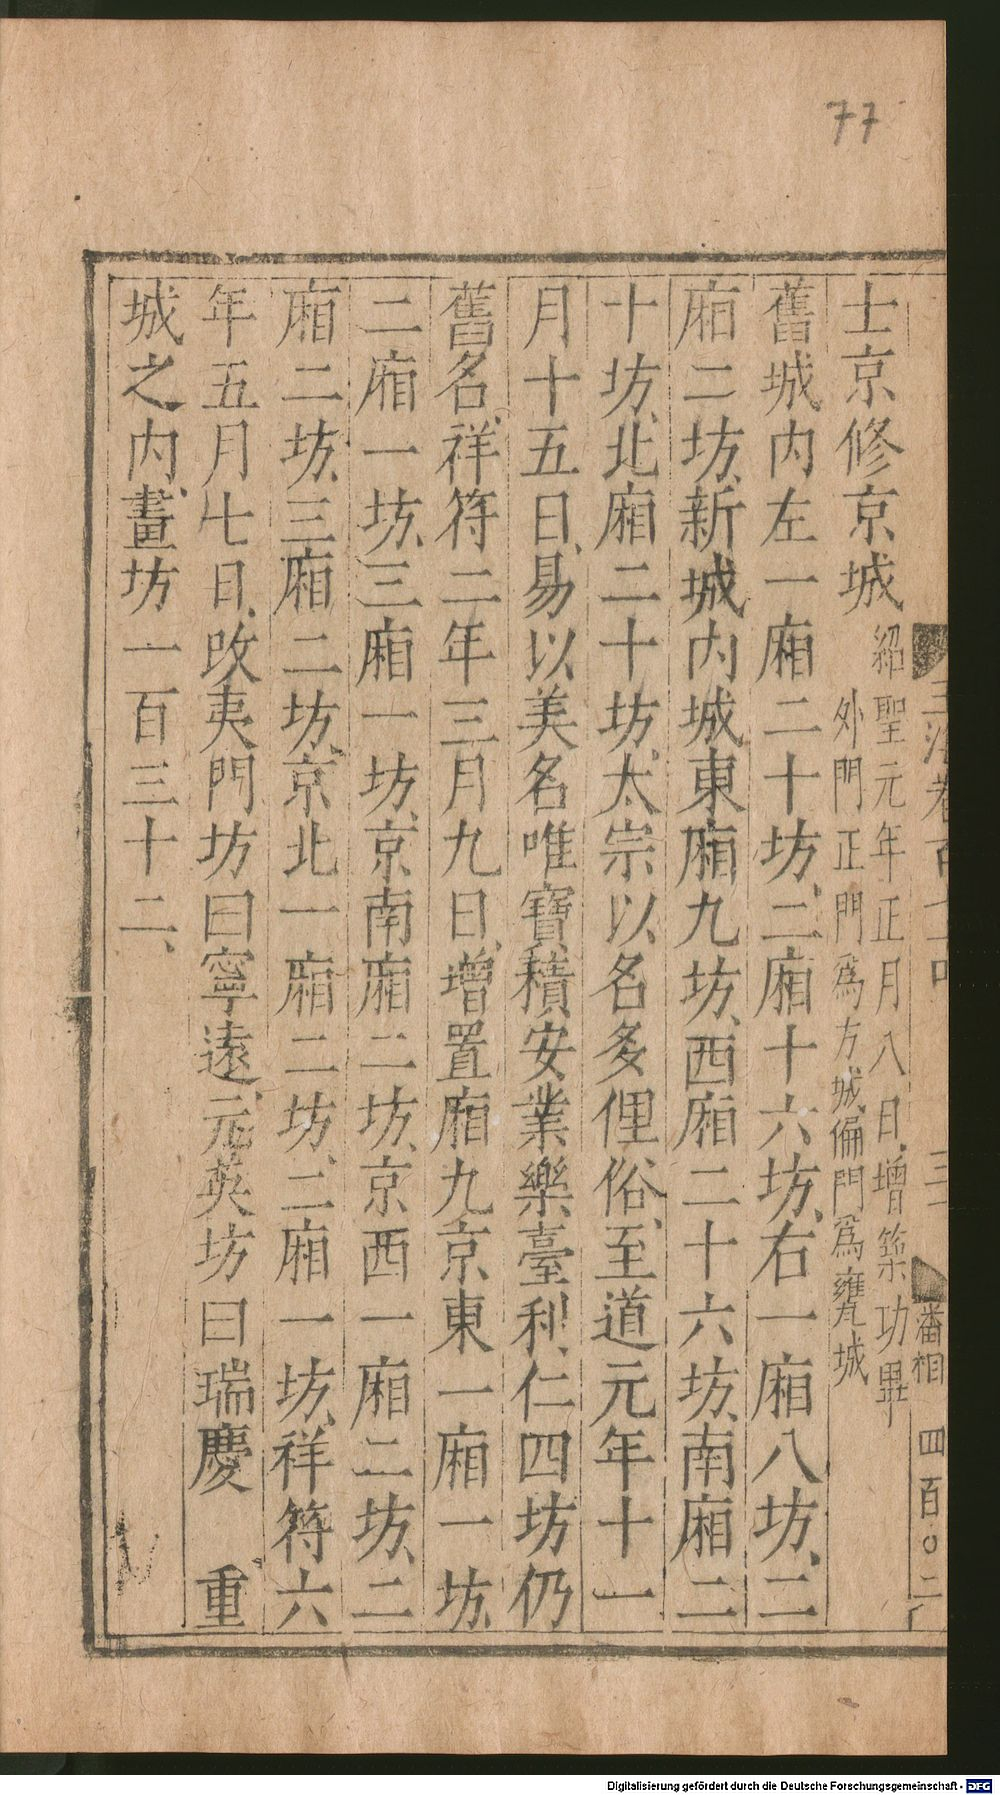 77
士京修京城紹聖元年正月八日、增築功畢
外門正門爲方城、偏門爲甕城
舊城内左一廂二十坊、二廂十六坊、右一廂八坊、二
廂二坊、新城内城東廂九坊、西廂二十六坊、南廂二
十坊、北廂二十坊、太宗以名多俚俗、至道元年十一
月十五日、易以美名唯寶積安業樂臺利仁四坊仍
舊名、祥符二年三月九日、增置廂九京東一廂一坊
二廂一坊、三廂一坊、京南廂二坊、京西一廂二坊、二
廂二坊、三廂二坊、京北一廂二坊、二廂一坊、祥符六
年五月七日、改夷門坊曰寧遠、元英坊曰瑞慶 重
城之内、畫坊一百三十二、
卷百 三 潘相 四百〇二
Digitalisierung gefördert durch die Deutsche Forschungsgemeinschaft - DFG